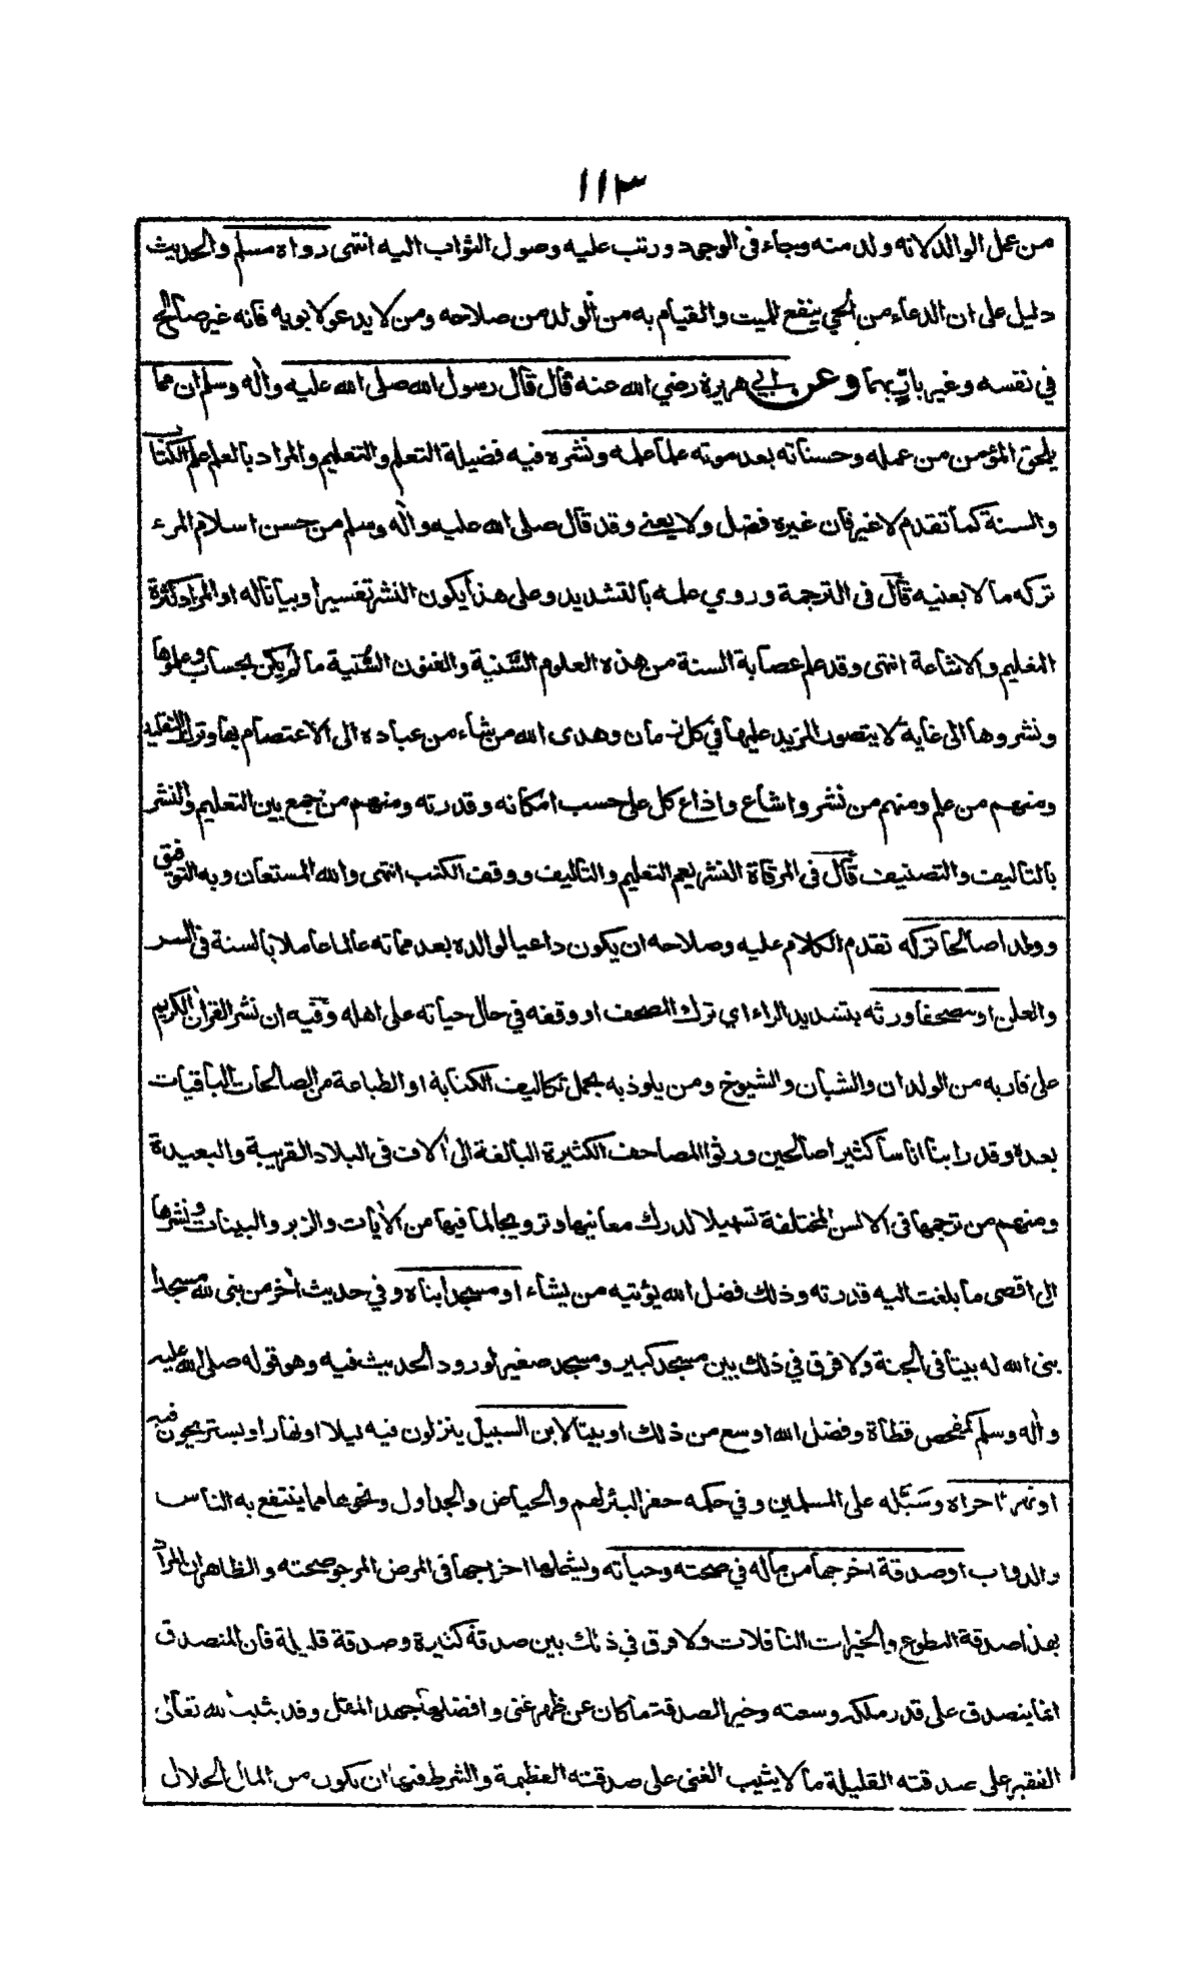 ١١٣
من عمل الوالد لانه ولد منه وجاء في الوجود ورتب عليه وصول الثواب اليه انتهى رواه مسلم والحديث
دليل على ان الدعاء من الحي ينفع للميت والقيام به من الولد من صلاحه ومن لا يدعو لابويه فانه غير صالح
في نفسه وغير بارّ بهما وعن ابي هريرة رضي الله عنه قال قال رسول الله صلى الله عليه وآله وسلم ان مما
يلحق المؤمن من عمله وحسناته بعد موته علما علمه ونشره فيه فضيلة التعلم والتعليم والمراد بالعلم علم الكتاب
والسنة كما تقدم لا غير فان غيره فضل ولا يعني وقد قال صلى الله عليه وآله وسلم من حسن اسلام المرء
تركه ما لا يعنيه قال في الترجمة وروي علمه بالتشديد وعلى هذا يكون النشر تفسيرا وبيانا له او المراد كثرة
التعليم والاشاعة انتهى وقد علم عصابة السنة من هذه العلوم السَّنية والفنون السُّنية ما لم يكن بحساب وعلموها
ونشروها الى غاية لا يتصور المزيد عليها في كل زمان وهدى الله من يشاء من عباده الى الاعتصام بها وترك التقليد
ومنهم من علم ومنهم من نشر واشاع واذاع كل على حسب امكانه وقدرته ومنهم من جمع بين التعليم والنشر
بالتاليف والتصنيف قال في المرقاة النشر يعم التعليم والتاليف ووقف الكتب انتهى والله المستعان وبه التوفيق
وولدا صالحا تركه تقدم الكلام عليه وصلاحه ان يكون داعيا لوالده بعد مماته عالما عاملا بالسنة في السر
والعلن او مصحفا ورثه بتشديد الراء اي ترك المصحف او وقفه في حال حياته على اهله وفيه ان نشر القرآن الكريم
على قاربه من الولدان والشبان والشيوخ ومن يلوذ به بحمل تكاليف الكتابة او الطباعة من الصالحات الباقيات
بعده وقد رأينا اناسا كثيرا صالحين ورثوا المصاحف الكثيرة البالغة الى آلاف في البلاد القريبة والبعيدة
ومنهم من ترجمها في الالسن المختلفة تسهيلا لدرك معانيها وترويجا لما فيها من الآيات والزبر والبينات ونشرها
الى اقصى ما بلغت اليه قدرته وذلك فضل الله يؤتيه من يشاء او مسجدا بناه وفي حديث آخر من بنى لله مسجدا
بنى الله له بيتا في الجنة ولا فرق في ذلك بين مسجد كبير ومسجد صغير لورود الحديث فيه وهو قوله صلى الله عليه
وآله وسلم كمفحص قطاة وفضل الله اوسع من ذلك او بيتا لابن السبيل ينزلون فيه ليلا او نهارا ويستريحون فيه
او نهرا اجراه وسَبَّله على المسلمين وفي حكمه حفر البئر لهم والحياض والجداول ونحوها مما ينتفع به الناس
والدواب او صدقة اخرجها من ماله في صحته وحياته ويشملها اخراجها في المرض المرجو صحته والظاهر ان المراد
بهذا صدقة التطوع والخيرات النافلات ولا فرق في ذلك بين صدقة كثيرة وصدقة قليلة فان المتصدق
انما يتصدق على قدر ملكه وسعته وخير الصدقة ما كان عن ظهر غنى وافضلها جهد المقل وقد يثيب الله تعالى
الفقير على صدقته القليلة ما لا يثيب الغني على صدقته العظيمة والشرط فيها ان يكون من المال الحلال